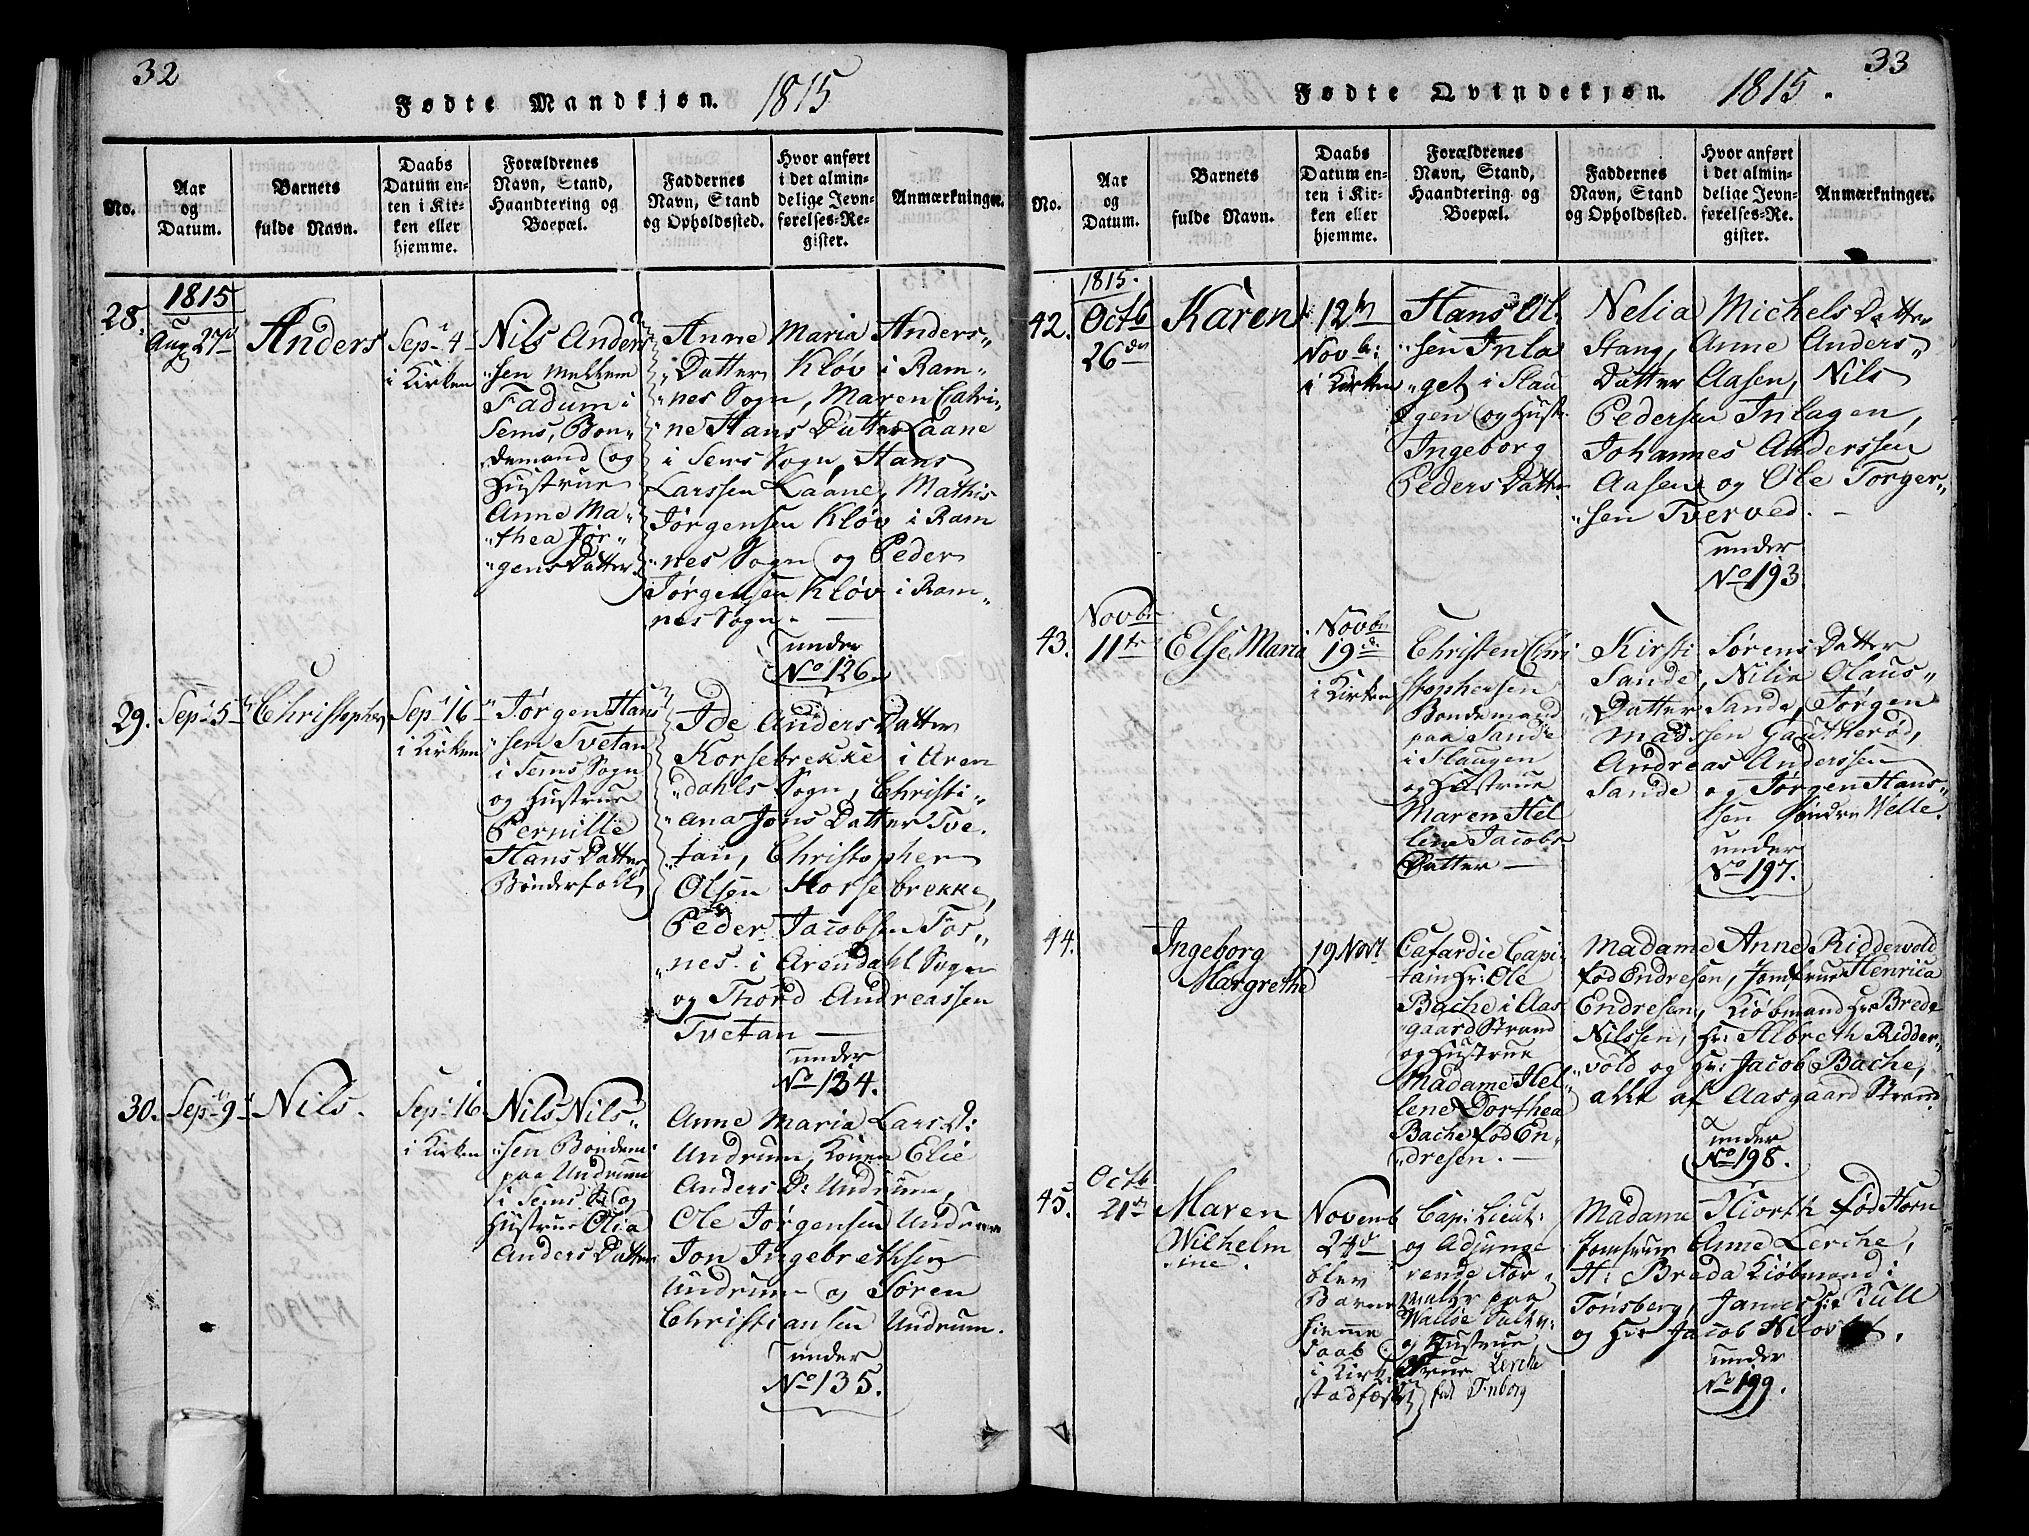 32
Fødte Mandkjøn. 1815
No.
Aar
og
Datum.
Barnets
fulde Navn.
Daabs
Datum en-
ten i Kir-
ken eller
hjemme.
Forældrenes
Navn, Stand,
Haandtering og
Boepæl.
Faddernes
Navn, Stand
og Opholdssted.
Hvor anført
i det almin-
delige Jevn-
førelses-Re-
gister.
Anmærkninger.
1815
28.
Aug 27d
Anders
Sept 4
i Kirken
Nils Anders
"sen mellem
Fadum i
Sems, Bon-
demand og
Hustrue
Anne Ma-
"thea Jør-
"gens Datter
Anne Maria Anders-
"Datter Kløv i Ram-
"nes Sogn, Maren Catri-
"ne Hans Datter Laane
i Sems Sogn, Hans
Larssen Laane, Mathis
Jørgensen Kløv i Ram
"nes Sogn og Peder
Jørgensen Kløv i Ram-
nes Sogn. —
under
No 126.
29.
Sept 5
Christopher
Sept 16
i Kirken
Jørgen Hans
"sen Tvetan
i Sems Sogn
og Hustrue
Pernille
Hans Datter
Bønderfolk
Ide Anders Datter
Korsebrekke i Aren
"dahls Sogn, Christi-
"ana Jons Datter Tve-
"tan, Christopher
Olsen Korsebrekke,
Peder Jacobsen Fos-
"nes i Arendahl Sogn
og Thord Andreassen
Tvetan —
under
No 134.
30.
Sept 9
Nils.
Sept 16
i Kirken
Nils Nils
"sen Bondem:
paa Undrum
i Sems S: og
Hustrue Olia
Anders Datter
Anne Maria Lars D:
Undrum, Konen Elie
Anders D: Undrum,
Ole Jørgensen Undrum
Jon Ingebrethsen
Undrum og Søren
Christiansen Undrum.
under
No 135.
33
Fødte Qvindekjøn. 1815.
No.
Aar
og
Datum.
Barnets
fulde Navn.
Daabs
Datum en-
ten i Kir-
ken eller
hjemme.
Forældrenes
Navn, Stand,
Haandtering og
Boepæl.
Faddernes
Navn, Stand
og Opholdssted.
Hvor anført
i det almin-
delige Jevn-
førelses-Re-
gister.
Anmærkninger.
1815.
42.
Octb
26den
Karen
12te
Novb:
i Kirken
Hans Ol-
"sen Inla
"get i Slau
"gen og Hustr.
Ingeborg
Peders Datter
Nelia Michels Datter
Stang, Anne Anders-
Datter Aasen, Nils
Pedersen Inlagen,
Johannes Anderssen
Aasen og Ole Torger-
"sen Tverved. —
under
No 193
43.
Novbr
11te
Else Maria
Novbr
19d.
i Kirken
Christen Chri
stophersen
Bondemand
paa Sande
i Slaugen
og Hustrue
Maren Hel
lene Jacobs
Datter —
Kirsti Sørens Datter
Sande, Nilia Olaus-
"Datter Sande, Jørgen
Madssen Gautherød,
Andreas Anderssen
Sande og Jørgen Hans-
sen Søndre Welle.
under
No 197.
44.
Ingeborg
Margrethe
19 Novr
Capi-
tain Hr: Ole
Bache i Aas
gaard Strand
og Hustrue
Madame Hel
lene Dorthea
Bache fød En-
"dresen. —
Madame Anne Riddervold
fød Endresen, Jomfrue Henrica
Endresen, Kiøbmand Hr Brede
Nilssen, Hr: Albreth Ridder-
"vold og Hr: Jacob Bache,
alle af Aasgaard Strand.
under
No 198.
45.
Octb
21de
Maren
Wilhelm
ine.
Novemb
24d
blev
Barnet
hiemme
døbt
i Kirken
stadfæstet
Cap: Lieut:
og Adjunge
rende
paa
Walløe Saltv:
og Hustrue
Frue Lerche
fød
Madame Hiorth fød Horn
Jomfrue Anne Lerche,
H: Breda Kiøbmand i
Tønsberg, James Hr: Bull
og Hr Jacob
under
No 199.